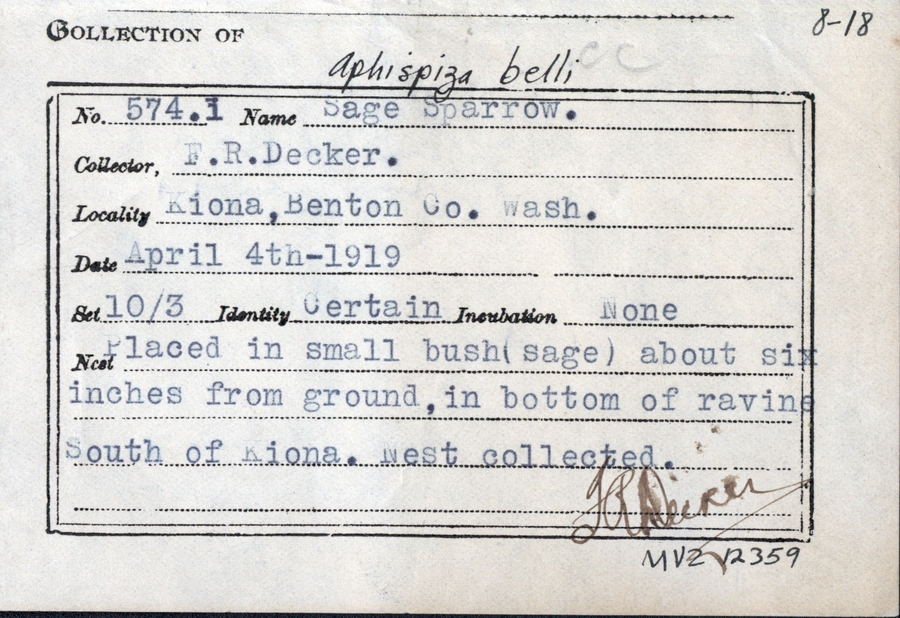 8-18
COLLECTION OF
Aphispiza belli
No. 574.1 Name Sage Sparrow.
Collector, F.R.Decker.
Locality Kiona, Benton Co. Wash.
Date April 4th-1919
Set 10/3 Identity Certain Incubation None
Nest Placed in small bush(sage) about six
inches from ground, in bottom of ravine
South of Kiona. Nest collected.
FRDecker
MVZ 12359